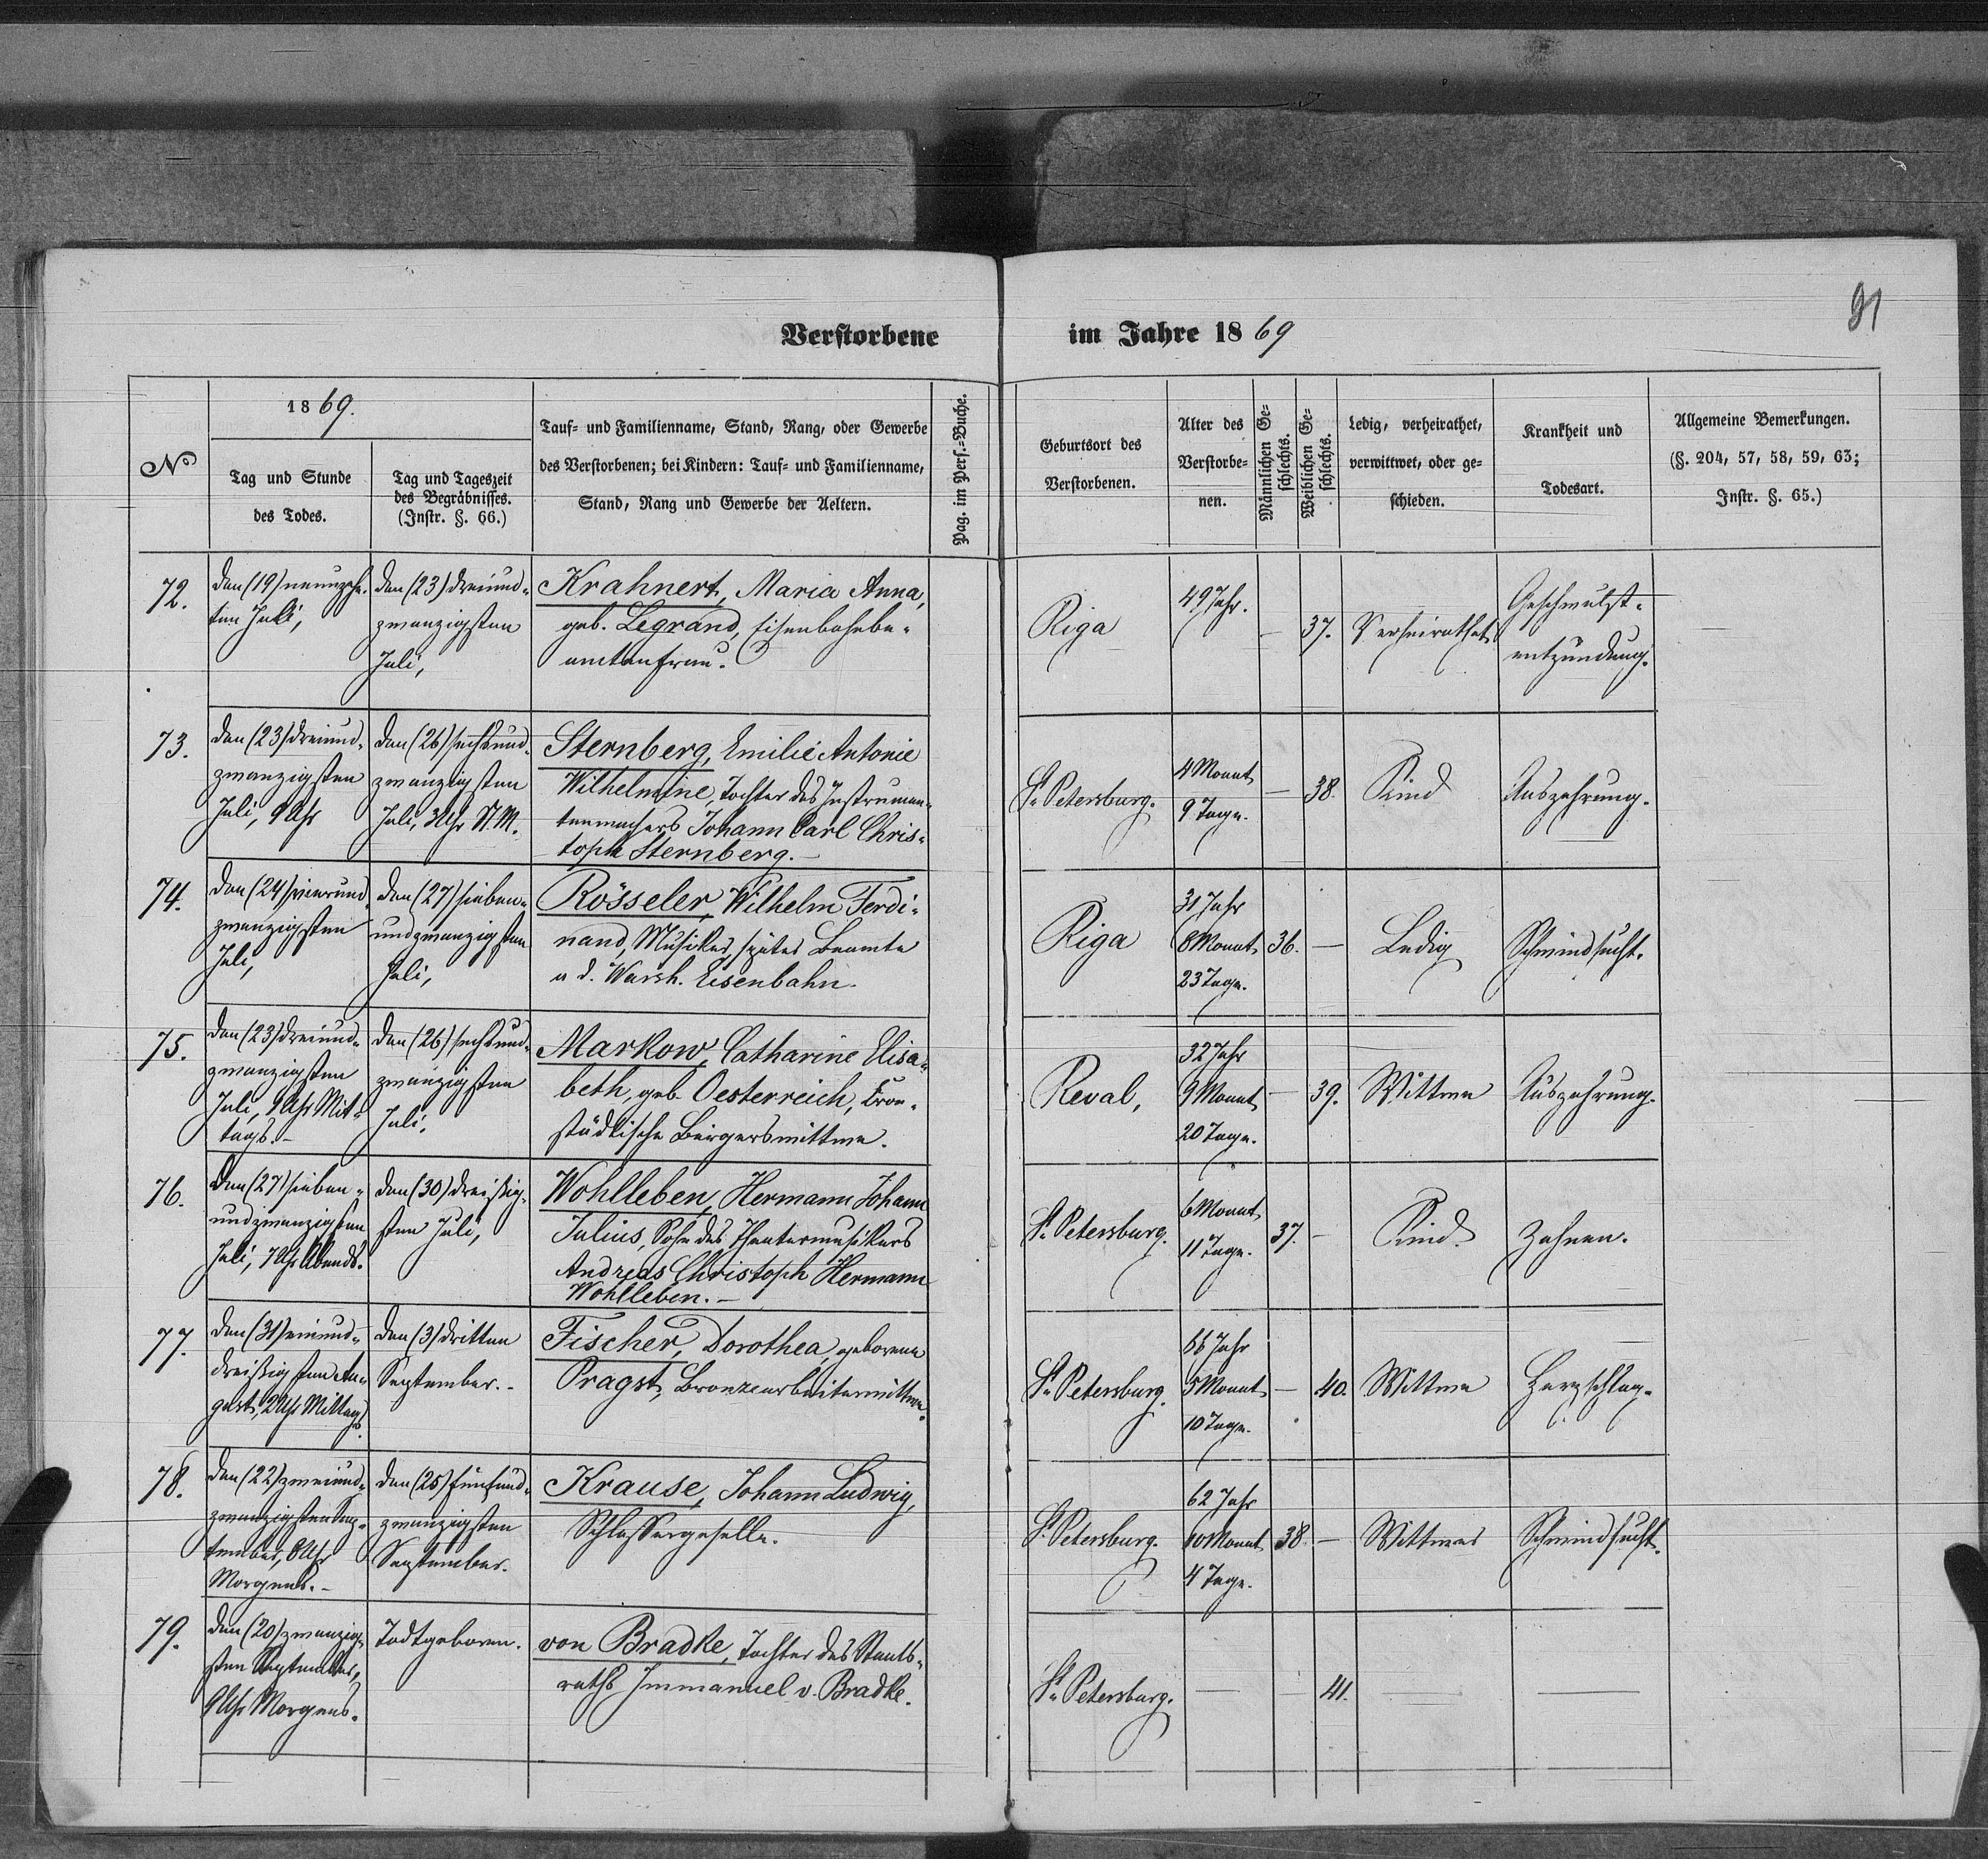 91
Verstorbene im Jahre 1869
No
1869.
Tag und Stunde
des Todes.
Tag und Tageszeit
des Begräbnisses.
(Instr. §. 66.)
Tauf= und Familienname, Stand, Rang, oder Gewerbe
des Verstorbenen; bei Kindern: Tauf= und Familienname,
Stand, Rang und Gewerbe der Aeltern.
Pag. im Pers.=Buche.
Geburtsort des
Verstorbenen.
Alter des
Verstorbe=
nen.
Männlichen Ge=
schlechts.
Weiblichen Ge=
schlechts.
Ledig, verheirathet,
verwittwet, oder ge=
schieden.
Krankheit und
Todesart.
Allgemeine Bemerkungen.
(§. 204, 57, 58, 59, 63;
Instr. §. 65.)
72.
den (19) neunzehn-
ten Juli,
den (23) dreiund-
zwanzigsten
Juli,
Krahnert, Maria Anna,
geb. Legrand, Eisenbahnbe-
amtenfrau.
Riga
49 Jahr.
—
37.
Verheirathet
Geschwulst-
entzündung.
73.
den (23) dreiund-
zwanzigsten
Juli, 9 Uhr
den (26) sechsund-
zwanzigsten
Juli, 3 Uhr N. M.
Sternberg, Emilie Antonie
Wilhelmine, Tochter des Instrumen-
tenmachers Johann Carl Chris-
toph Sternberg.—
St. Petersburg.
4 Monat
9 Tage.
—
38.
Kind
Auszehrung.
74.
den (24) vierund-
zwanzigsten
Juli,
den (27) sieben-
undzwanzigsten
Juli,
Rösseler, Wilhelm Ferdi-
nand, Musiker, später Beamte
a d. Warsh. Eisenbahn.
Riga
31 Jahr
8 Monat
23 Tage.
36.
—
Ledig
Schwindsucht.
75.
den (23) dreiund-
zwanzigsten
Juli, 1 Uhr Mit-
tags.—
den (26) sechsund-
zwanzigsten
Juli.
Markow, Catharine Elisa-
beth, geb. Oesterreich, Kron-
städtische Bürgerswittwe.
Reval,
32 Jahr
9 Monat
20 Tage.
—
39.
Wittwe
Auszehrung.
76.
den (27) sieben-
undzwanzigsten
Juli, 7 Uhr Abends.
den (30) dreißig-
sten Juli,
Wohlleben, Hermann Johann
Julius, Sohn des Theatermusikers
Andreas Christoph Hermann
Wohlleben.—
St. Petersburg.
6 Monat
11 Tage.
37.
—
Kind.
Zahnen.
77.
den (31) einund-
dreißigsten Au-
gust, 2 Uhr Mittags.
den (3) dritten
September.—
Fischer, Dorothea, geborene
Pragst, Bronzearbeiterwittwe.
St. Petersburg.
66 Jahr
5 Monat
10 Tage.
—
40.
Wittwe
Herzschlag.
78.
den (22) zweiund-
zwanzigsten Sep-
tember, 8 Uhr
Morgens.—
den (25) fünfund-
zwanzigsten
September.
Krause, Johann Ludwig,
Schlossergeselle.
St. Petersburg.
62 Jahr
10 Monat
4 Tage.
38.
—
Wittwer
Schwindsucht.
79.
den (20) zwanzig-
sten September,
9 Uhr Morgens.
Todtgeboren.
von Bradke, Tochter des Staats-
raths Immanuel v. Bradke.
St. Petersburg.
—
—
41.
—
—